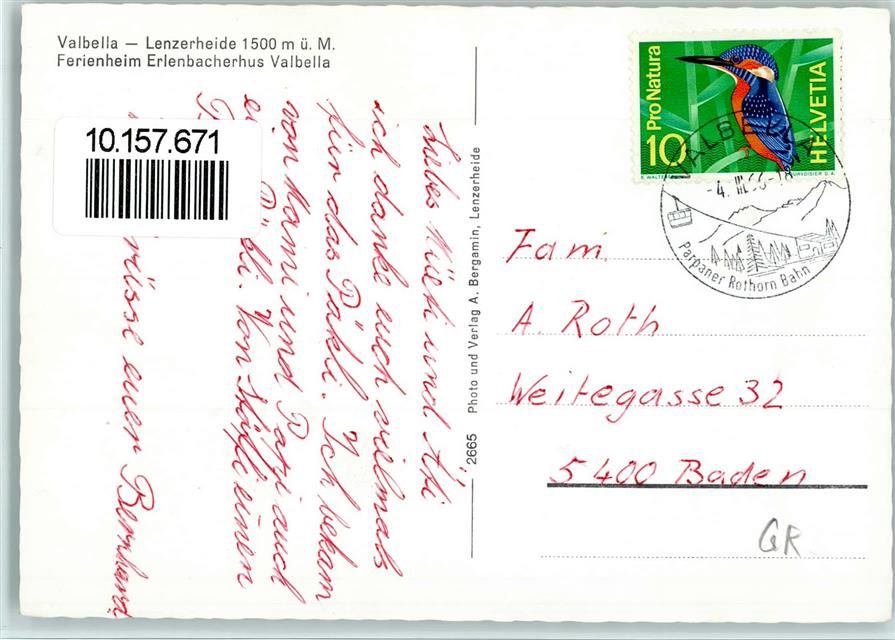 Valbella — Lenzerheide 1500 m ü. M.
Ferienheim Erlenbacherhus Valbella
10.157.671
Liebes Müeti und Äti
ich danke euch vielmals
für das Päkli. Ich bekam
von Mami und Papi auch
ein Päkli. Von Stäfli einen
Grüsse euer Bernhard
Photo und Verlag A. Bergamin, Lenzerheide
2665
Pro Natura
10
HELVETIA
VALBELLA
-4. III. 66-18
Parpaner Rothorn Bahn
Fam.
A. Roth
Weitegasse 32
5400 Baden
GR